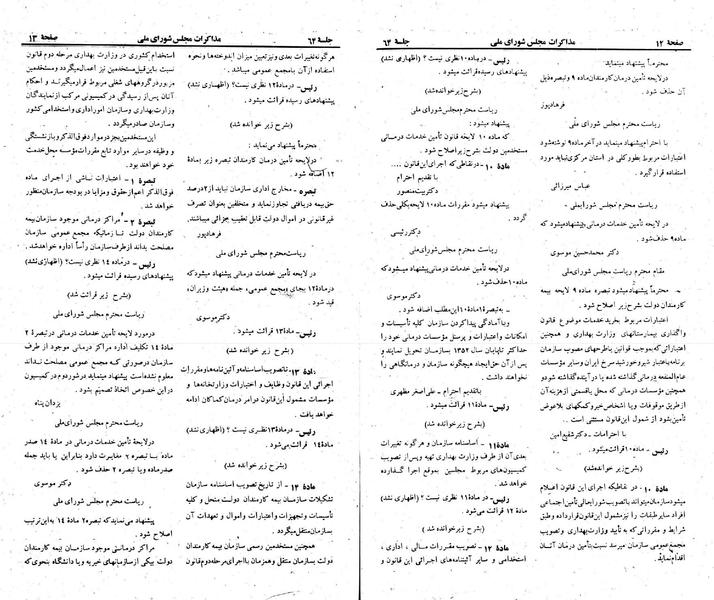 صفحهٔ ۱۲
مذاکرات مجلس شورای ملی
جلسهٔ ۶۴
محترماً پیشنهاد مینماید
در لایحه تأمین درمان کارمندان ماده ۹ و تبصره ذیل
آن حذف شود .
فرهادپور
ریاست محترم مجلس شورای ملی
با احترام پیشنهاد مینماید در آخر ماده ۹ نوشته شود
اعتبارات مربوط بطور کلی در استان مرکزی نباید مورد
استفاده قرار گیرد .
عباس میرزائی
ریاست محترم مجلس شورایملی .
در لایحه تأمین خدمات درمانی پیشنهاد میشود که
ماده ۹ حذف شود .
دکتر محمدحسین موسوی
مقام محترم ریاست مجلس شورای ملی
محترماً پیشنهاد میشود تبصره ماده ۹ لایحه بیمه
کارمندان دولت بشرح زیر اصلاح شود :
اعتبارات مربوط بخرید خدمات موضوع قانون
واگذاری بیمارستانهای وزارت بهداری و همچنین
اعتباراتی که بموجب قوانین یا طرحهای مصوب سازمان
برنامه باعتبار شیر و خورشید سرخ ایران و سایر مؤسسات
عام‌المنفعه درمانی گذاشته شده یا در آینده گذاشته شود و
همچنین مؤسسات درمانی که محل یا قسمتی از هزینه آن
از طریق موقوفات و یا اشخاص خیر و کمکهای بلاعوض
تأمین بشود از شمول این قانون مستثنی است .
با احترامات ـ دکتر شفیع امین
رئیس ـ ماده ۱۰ قرائت میشود .
(بشرح زیر خوانده شد)
مادهٔ ۱۰ ـ در نقاطی که اجرای این قانون اعلام
میشود سازمان میتواند با تصویب شورایعالی تأمین اجتماعی
افراد سایر طبقات را نیز مشمول این قانون قرار داده و طبق
شرایط و مقرراتی که به تأیید وزارت بهداری و تصویب
مجمع عمومی سازمان میرسد نسبت بتأمین درمان آنان
اقدام نماید .
رئیس ـ در ماده ۱۰ نظری نیست ؟ (اظهاری نشد)
پیشنهادهای رسیده قرائت میشود .
(بشرح زیر خوانده شد)
ریاست محترم مجلس شورای ملی
پیشنهاد میشود :
که ماده ۱۰ لایحه قانون تأمین خدمات درمانی
مستخدمین دولت بشرح زیر اصلاح شود .
مادهٔ ۱۰ ـ در نقاطی که اجرای این قانون ....
با تقدیم احترام
دکتر بیت‌منصور
پیشنهاد میشود مقررات ماده ۱۰ لایحه بکلی حذف
گردد .
دکتر رئیسی
ریاست محترم مجلس شورای ملی
در لایحه تأمین خدمات درمانی پیشنهاد میشود که
ماده ۱۰ حذف شود .
دکتر موسوی
ـ به تبصره ۱ ماده ۱۰ این مطلب اضافه شود .
و با آمادگی پیدا کردن سازمان کلیه تأسیسات و
امکانات و اعتبارات و پرسنل مؤسسات درمانی خود را
حداکثر تا پایان سال ۱۳۵۲ بسازمان تحویل نمایند و
پس از آن حق ایجاد هیچگونه سازمان و درمانگاهی را
نخواهند داشت .
با تقدیم احترام ـ علی اصغر مظهری
رئیس ـ ماده ۱۱ قرائت میشود .
(بشرح زیر خوانده شد)
مادهٔ ۱۱ ـ اساسنامه سازمان و هرگونه تغییرات
بعدی آن از طرف وزارت بهداری تهیه و پس از تصویب
کمیسیونهای مربوط مجلسین بموقع اجرا گذارده
میشود .
رئیس ـ در ماده ۱۱ نظری نیست ؟ (اظهاری نشد)
ماده ۱۲ قرائت میشود .
(بشرح زیر خوانده شد)
مادهٔ ۱۲ ـ تصویب مقررات مالی ، اداری ،
استخدامی و سایر آئیننامه‌های اجرائی این قانون و
جلسهٔ ۶۴
مذاکرات مجلس شورای ملی
صفحهٔ ۱۳
هرگونه تغییرات بعدی و نیز تعیین میزان اندوخته‌ها و نحوه
استفاده از آن با مجمع عمومی میباشد .
رئیس ـ در ماده ۱۲ نظری نیست ؟ (اظهاری نشد)
پیشنهادهای رسیده قرائت میشود .
(بشرح زیر خوانده شد)
محترماً پیشنهاد می‌نماید :
در لایحه تأمین درمان کارمندان تبصره زیر بماده
۱۲ اضافه شود .
تبصره ـ مخارج اداری سازمان نباید از ۲ درصد
حق بیمه دریافتی تجاوز نماید و متخلفین بعنوان تصرف
غیرقانونی در اموال دولت قابل تعقیب جزائی میباشند .
فرهادپور
ریاست محترم مجلس شورای ملی
در لایحه تأمین خدمات درمانی پیشنهاد میشود که
در ماده ۱۲ بجای «مجمع عمومی، جمله «هیئت وزیران»
قید شود .
دکتر موسوی
رئیس ـ مادهٔ ۱۳ قرائت میشود .
(بشرح زیر خوانده شد)
مادهٔ ۱۳ ـ تا تصویب اساسنامه و آئین‌نامه‌ها و مقررات
اجرائی این قانون وظایف و اختیارات وزارتخانه‌ها و
مؤسسات مشمول این قانون در امر درمان کماکان ادامه
خواهد یافت .
رئیس ـ در ماده ۱۳ نظری نیست ؟ (اظهاری نشد)
مادهٔ ۱۴ قرائت می‌شود .
(بشرح زیر خوانده شد)
مادهٔ ۱۴ ـ از تاریخ تصویب اساسنامه سازمان
تشکیلات سازمان بیمه کارمندان دولت منحل و کلیه
تأسیسات و تجهیزات و اعتبارات و اموال و تعهدات آن
بسازمان منتقل میگردد .
همچنین مستخدمین رسمی سازمان بیمه کارمندان
دولت بسازمان منتقل و همزمان با اجرای مرحله دوم قانون
استخدام کشوری در وزارت بهداری مرحله دوم قانون
نسبت باین قبیل مستخدمین نیز اعمال میگردد و مستخدمین
مزبور در گروههای شغلی مربوط قرار میگیرند و احکام
آنان پس از رسیدگی در کمیسیونی مرکب از نمایندگان
وزارت بهداری و سازمان امور اداری و استخدامی کشور
و سازمان صادر میگردد .
این مستخدمین بجز در موارد فوق‌الذکر و بازنشستگی
و وظیفه در سایر موارد تابع مقررات مؤسسه محل خدمت
خود خواهند بود .
تبصرهٔ ۱ ـ اعتبارات ناشی از اجرای ماده
فوق‌الذکر اعم از حقوق و مزایا در بودجه سازمان منظور
خواهد شد .
تبصرهٔ ۲ ـ مراکز درمانی موجود سازمان بیمه
کارمندان دولت تا زمانیکه مجمع عمومی سازمان
مصلحت بداند از طرف سازمان رأساً اداره خواهد شد .
رئیس ـ در ماده ۱۴ نظری نیست ؟ (اظهاری نشد)
پیشنهادهای رسیده قرائت میشود .
(بشرح زیر قرائت شد)
ریاست محترم مجلس شورای ملی
در مورد لایحه تأمین خدمات درمانی در تبصره ۲
ماده ۱۴ تکلیف اداره مراکز درمانی موجود از طرف
سازمان در صورتی که مجمع عمومی مصلحت نداند
معلوم نشده است پیشنهاد مینماید در مورد دوم در کمیسیون
در این خصوص اتخاذ تصمیم بشود .
یزدان پناه
ریاست محترم مجلس شورای ملی
در لایحهٔ تأمین خدمات درمانی در ماده ۱۴ صدر
ماده با تبصره ۲ مغایرت دارد بنابراین یا باید جمله
صدر ماده و یا تبصره ۲ حذف شود .
دکتر موسوی
ریاست محترم مجلس شورای ملی
پیشنهاد می‌نماید که تبصره ۲ مادهٔ ۱۴ به این ترتیب
اصلاح شود .
مراکز درمانی موجود سازمان بیمه کارمندان
دولت بیکی از سازمانهای خیریه و یا دانشگاه بنحوی که